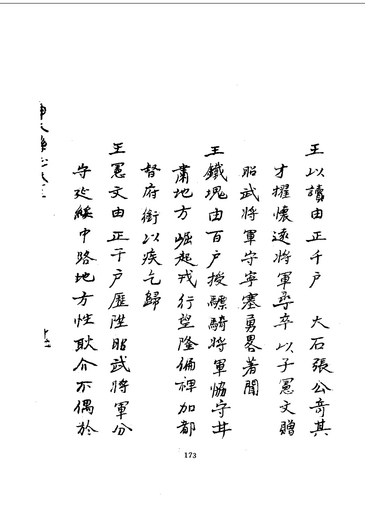 王以讀由正千户 大石張公奇其
才擢懷遠將軍尋卒以子憲文贈
昭武將軍守寧塞勇畧著聞
王鐵塊由百户授驃騎將軍恊守井
肅地方崛起戎行望隆偏裨加都
督府銜以疾乞歸
王憲文由正千户歷陞昭武將軍分
守延綏中路地方性耿介不偶於
173